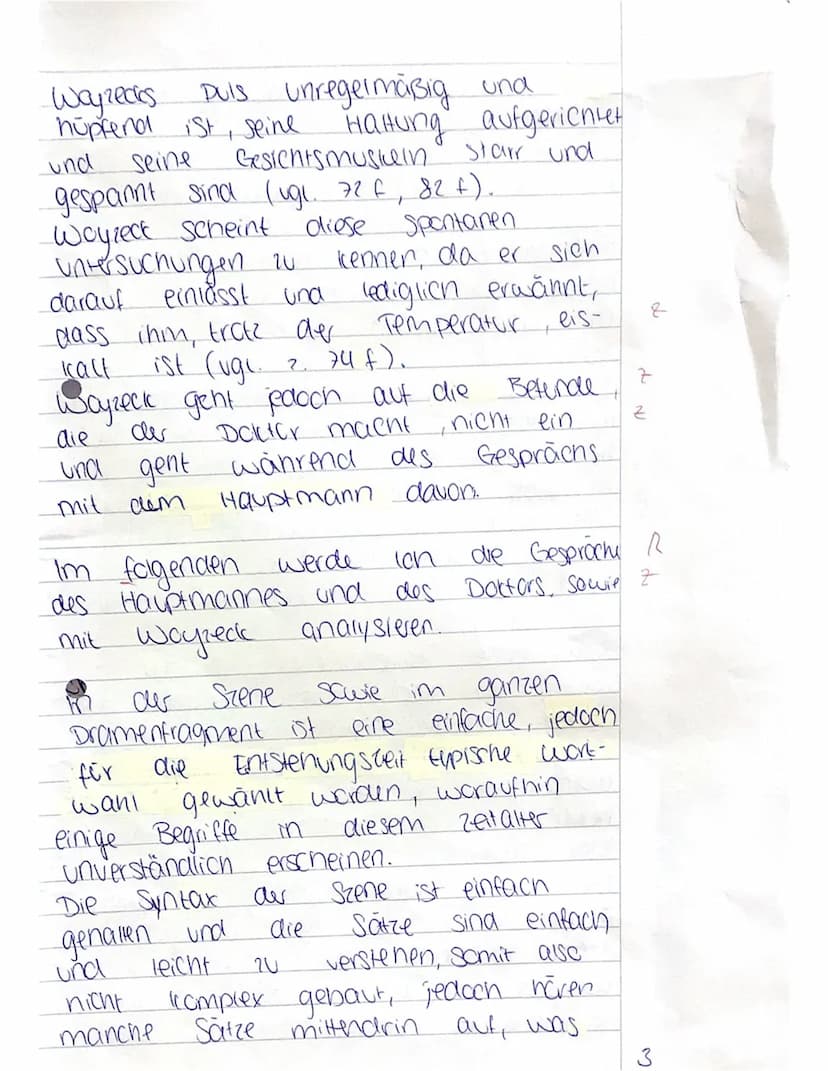 Woyzecks Puls unregelmäßig und
hüpfend ist, seine Haltung aufgerichtet
und seine Gesichtsmuskeln starr und
gespannt sind (vgl. 72 f, 82 f).
Woyzeck scheint diese spontanen
Untersuchungen zu kennen, da er sich
darauf einlässt und lediglich erwähnt,
dass ihm, trotz der Temperatur, eis- z
kalt ist (vgl. z. 74 f).
Woyzeck geht jedoch auf die Befunde, z
die der Doktor macht, nicht ein z
und geht während des Gesprächs
mit dem Hauptmann davon.
Im folgenden werde ich die Gespräche R
des Hauptmannes und des Doktors, sowie z
mit Woyzeck analysieren.
In der Szene sowie im ganzen
Dramenfragment ist eine einfache, jedoch
für die Entstehungszeit typische Wort-
wahl gewählt worden, woraufhin
einige Begriffe in diesem Zeitalter
unverständlich erscheinen.
Die Syntax der Szene ist einfach
gehalten und die Sätze sind einfach
und leicht zu verstehen, somit also
nicht komplex gebaut, jedoch hören
manche Sätze mittendrin auf, was
3